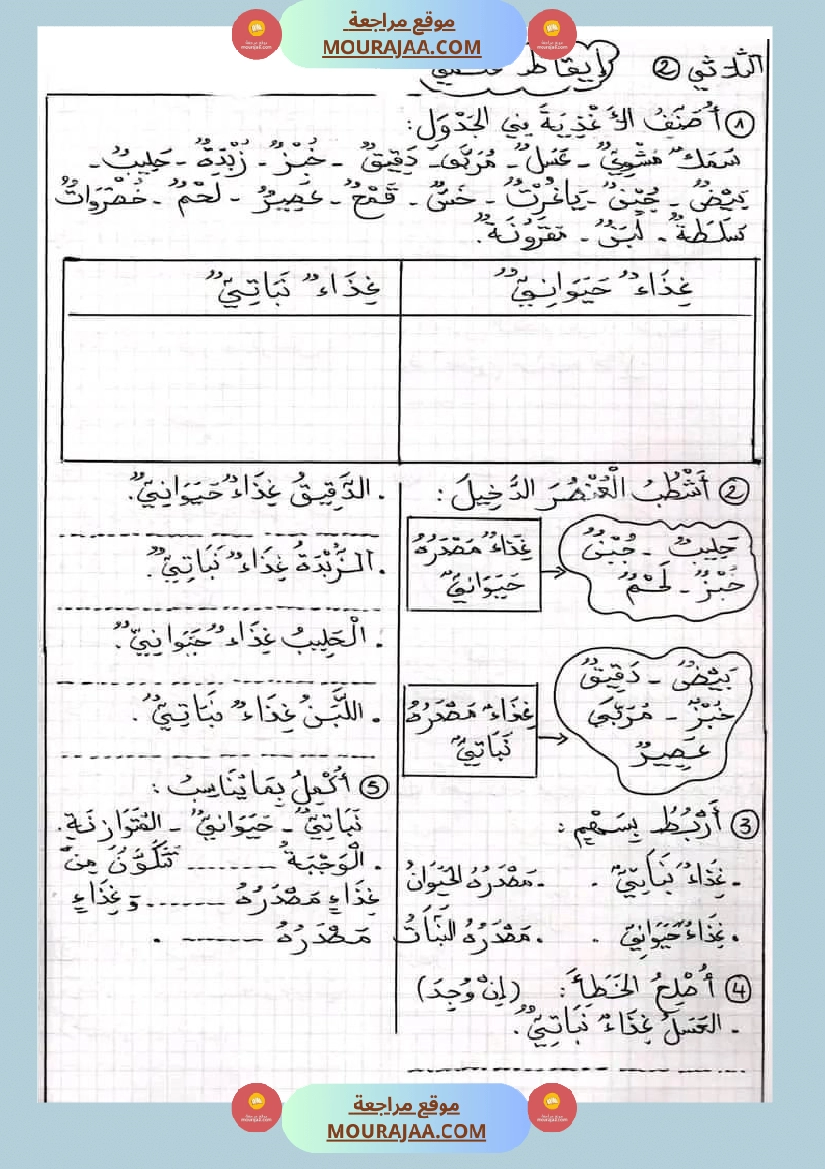 موقع مراجعة
MOURAJAA.COM
الثلاثي ②
إيقاظ
① أُصَنِّفُ الأَغْذِيَةَ فِي الجَدْوَلِ:
سَمَكٌ مَشْوِيٌّ - عَسَلٌ - مُرَبَّى - دَقِيقٌ - خُبْزٌ - زُبْدَةٌ - حَلِيبٌ -
بَيْضٌ - جُبْنٌ - يَاغُرْتٌ - خَسٌّ - قَمْحٌ - عَصِيرٌ - لَحْمٌ - خُضْرَوَاتٌ
سَلَطَةٌ - لَبَنٌ - مَقَرُونَةٌ.
غِذَاءٌ حَيَوَانِيٌّ
غِذَاءٌ نَبَاتِيٌّ
② أَشْطُبُ الْعُنْصُرَ الدَّخِيلَ:
حَلِيبٌ - جُبْنٌ
خُبْزٌ - لَحْمٌ
غِذَاءٌ مَصْدَرُهُ
حَيَوَانِيٌّ
بَيْضٌ - دَقِيقٌ
خُبْزٌ - مُرَبَّى
عَصِيرٌ
غِذَاءٌ مَصْدَرُهُ
نَبَاتِيٌّ
③ أَرْبُطُ بِسَهْمٍ:
- غِذَاءٌ نَبَاتِيٌّ . .مَصْدَرُهُ الحَيَوَانُ
. غِذَاءٌ حَيَوَانِيٌّ . .مَصْدَرُهُ النَّبَاتُ
④ أُصْلِحُ الخَطَأَ: (إِنْ وُجِدَ)
- العَسَلُ غِذَاءٌ نَبَاتِيٌّ.
. الدَّقِيقُ غِذَاءٌ حَيَوَانِيٌّ.
. الزُّبْدَةُ غِذَاءٌ نَبَاتِيٌّ.
. الْحَلِيبُ غِذَاءٌ حَيَوَانِيٌّ.
. اللَّبَنُ غِذَاءٌ نَبَاتِيٌّ.
⑤ أُكْمِلُ بِمَا يُنَاسِبُ:
نَبَاتِيٌّ - حَيَوَانِيٌّ - المُتَوَازِنَةُ.
. الْوَجْبَةُ ........ تَتَكَوَّنُ مِنْ
غِذَاءٍ مَصْدَرُهُ ........ وَغِذَاءٍ
مَصْدَرُهُ ........ .
موقع مراجعة
MOURAJAA.COM